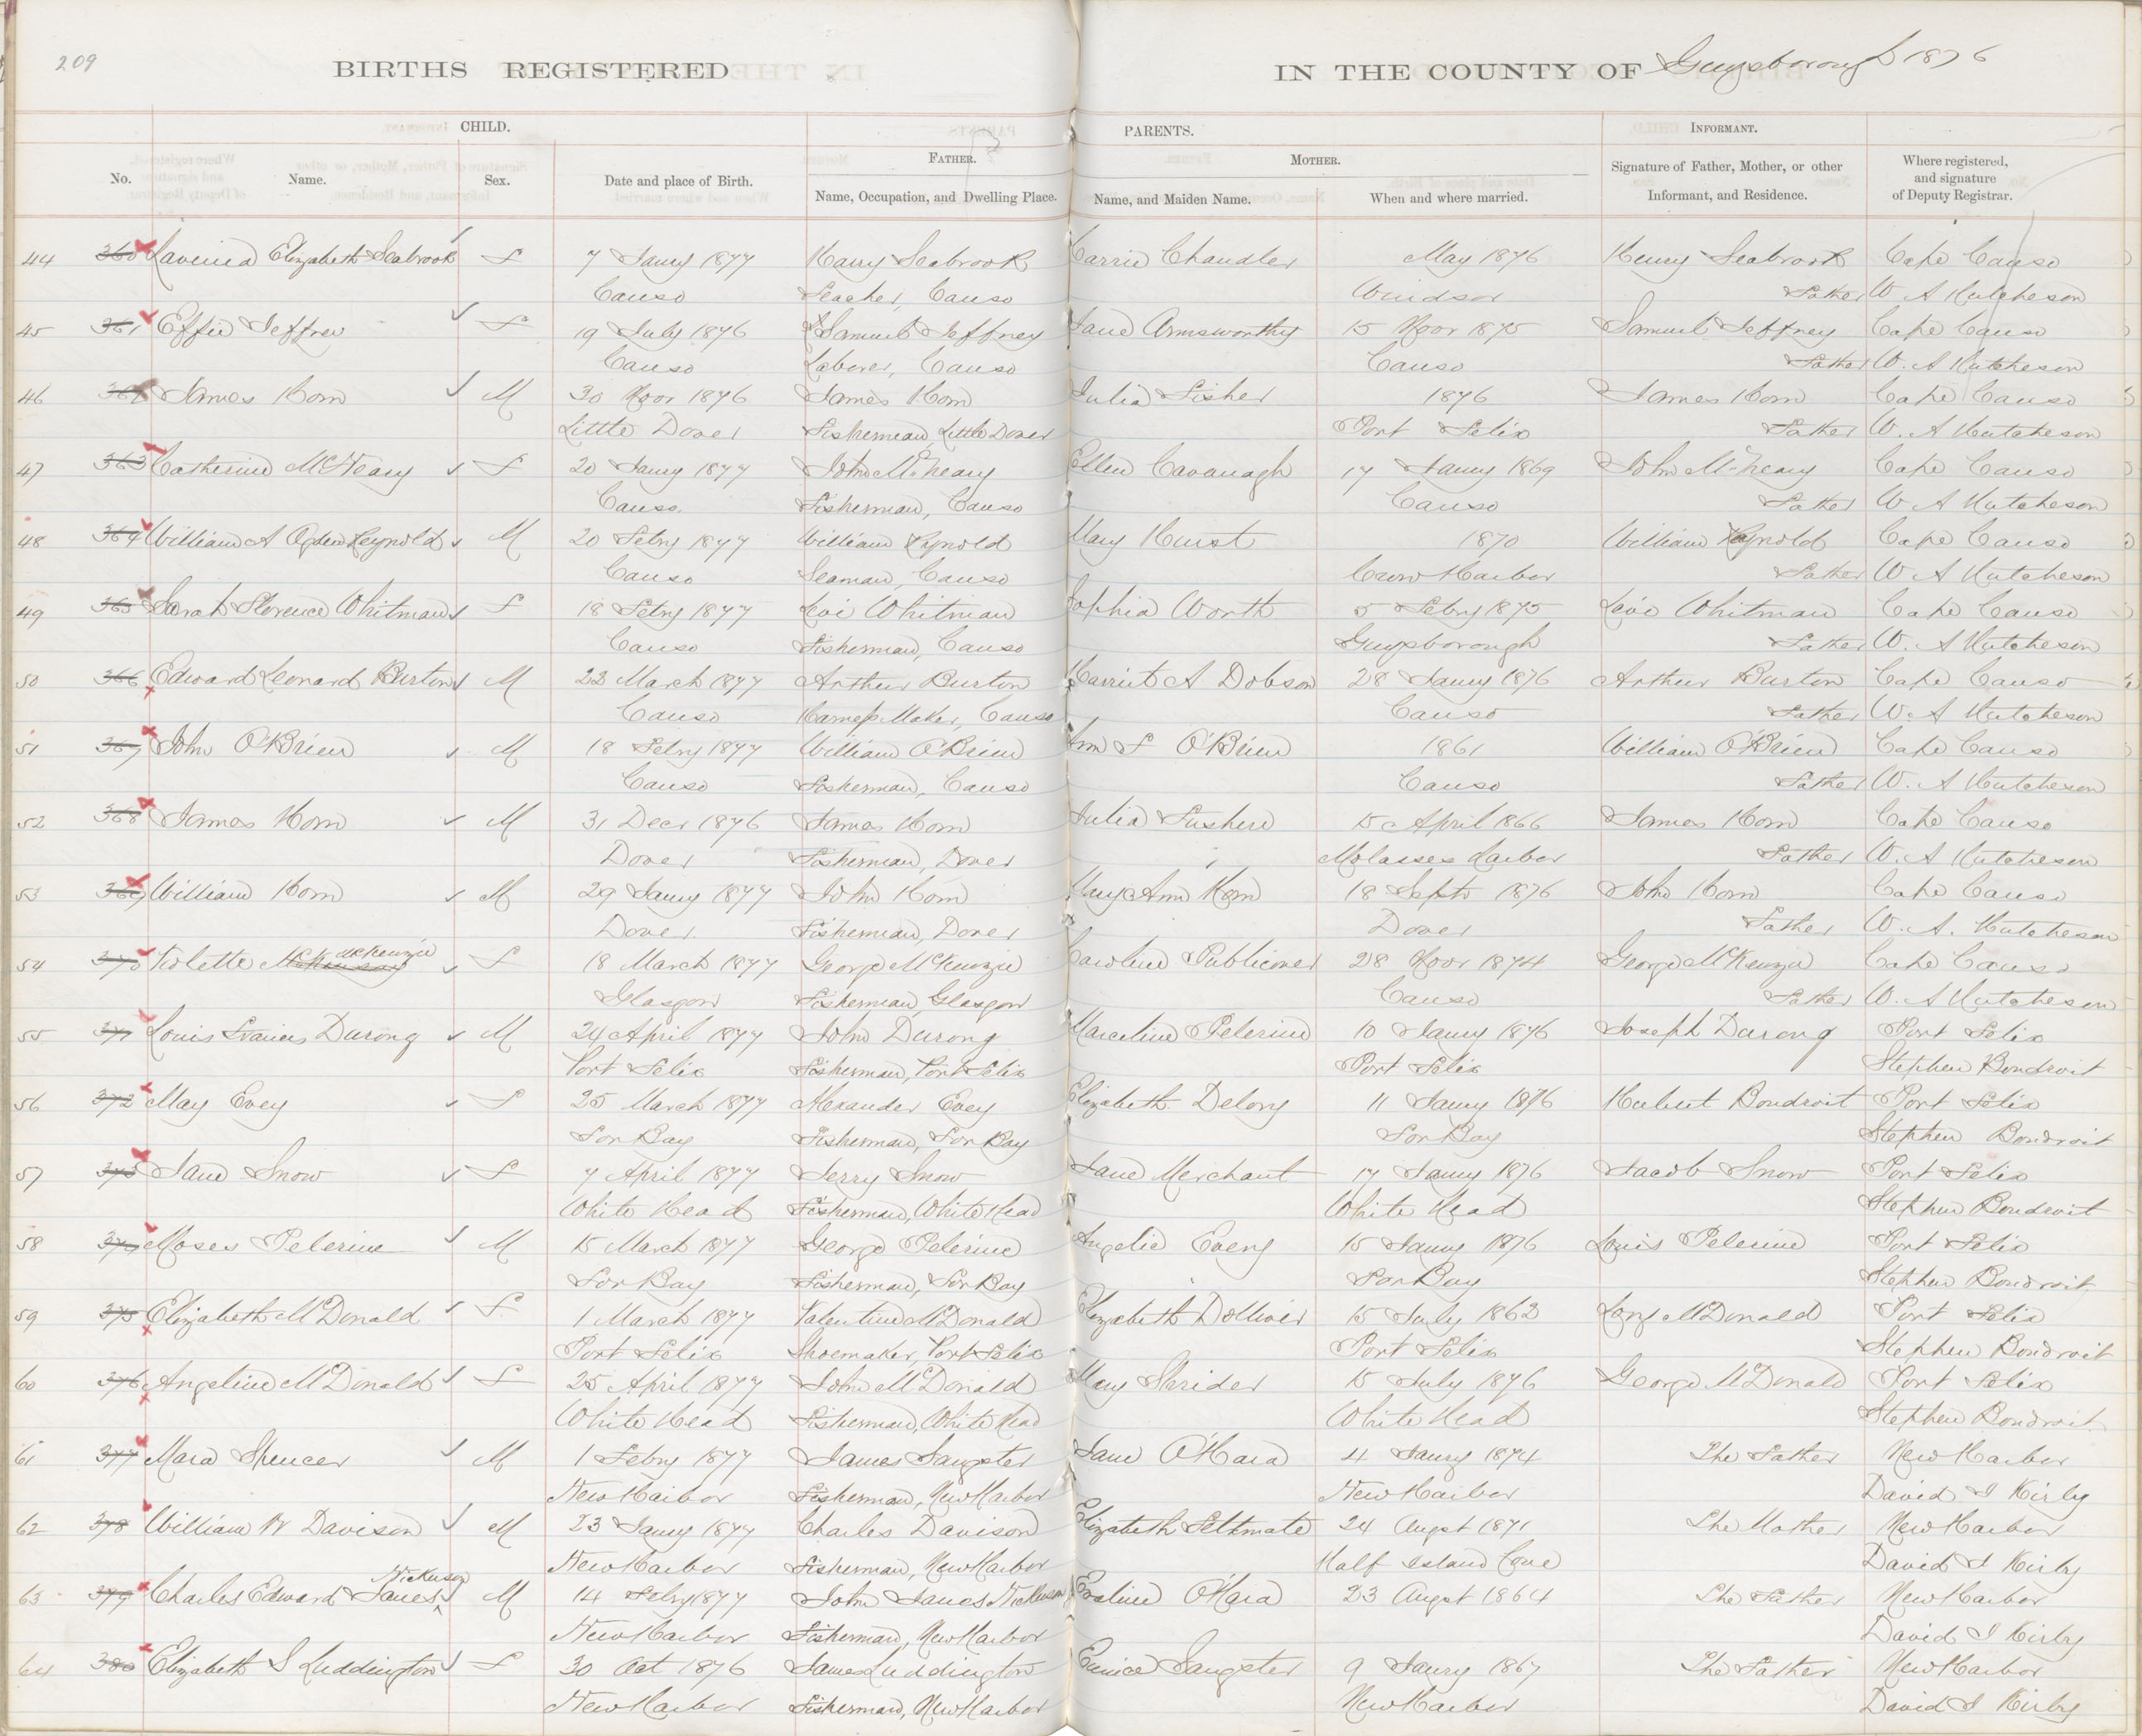 209
BIRTHS REGISTERED IN THE COUNTY OF Guysborough 1876
CHILD. PARENTS. INFORMANT.
FATHER. MOTHER.
No. Name. Sex. Date and place of Birth. Name, Occupation, and Dwelling Place. Name, and Maiden Name. When and where married. Signature of Father, Mother, or other Informant, and Residence. Where registered, and signature of Deputy Registrar.
44 360 Lavinia Elizabeth Seabrook F 7 Jany 1877 Harry Seabrook Carrie Chandler May 1876 Henry Seabrook Cape Canso
Canso Teacher, Canso Windsor Father W A Hutcheson
45 361 Effie Jeffrey F 19 July 1876 Samuel Jeffrey Jane Armsworthy 15 Novr 1875 Samuel Jeffrey Cape Canso
Canso Laborer, Canso Canso Father W. A Hutcheson
46 362 James Horn M 30 Novr 1876 James Horn Julia Fisher 1876 James Horn Cape Canso
Little Dover Fisherman, Little Dover Port Felix Father W. A Hutcheson
47 363 Catherine McNeary F 20 Jany 1877 John McNeary Ellen Cavanagh 17 Jany 1869 John McNeary Cape Canso
Canso Fisherman, Canso Canso Father W A Hutcheson
48 364 William A Ogden Reynold M 20 Febry 1877 William Reynold Mary Hurst 1870 William Reynold Cape Canso
Canso Seaman, Canso Crow Harbor Father W A Hutcheson
49 365 Sarah Florence Whitman F 18 Febry 1877 Levi Whitman Sophia Worth 5 Febry 1875 Levi Whitman Cape Canso
Canso Fisherman, Canso Guysborough Father W. A Hutcheson
50 366 Edward Leonard Burton M 23 March 1877 Arthur Burton Harriet A Dobson 28 Jany 1876 Arthur Burton Cape Canso
Canso Harness Maker, Canso Canso Father W. A Hutcheson
51 367 John O'Brien M 18 Febry 1877 William O'Brien Ann F O'Brien 1861 William O'Brien Cape Canso
Canso Fisherman, Canso Canso Father W. A Hutcheson
52 368 James Horn M 31 Decr 1876 James Horn Julia 15 April 1866 James Horn Cape Canso
Dover Fisherman, Dover Molasses Harbor Father W. A Hutcheson
53 369 William Horn M 29 Jany 1877 John Horn Mary Ann Horn 18 Septr 1876 John Horn Cape Canso
Dover Fisherman, Dover Dover Father W. A. Hutcheson
54 370 Violette McKenzie F 18 March 1877 George McKenzie Caroline Publicover 28 Novr 1874 George McKenzie Cape Canso
Glasgow Fisherman, Glasgow Canso Father W. A Hutcheson
55 371 Louis Francis Durong M 24 April 1877 John Durong Marceline Pelerine 10 Jany 1876 Joseph Durong Port Felix
Port Felix Fisherman, Port Felix Port Felix Stephen Boudroit
56 372 May Evey F 25 March 1877 Alexander Evey Elizabeth Delory 11 Jany 1876 Hubert Boudroit Port Felix
Tor Bay Fisherman, Tor Bay Tor Bay Stephen Boudroit
57 373 Jane Snow F 7 April 1877 Jerry Snow Jane Merchant 17 Jany 1876 Jacob Snow Port Felix
White Head Fisherman, White Head White Head Stephen Boudroit
58 374 Moses Pelerine M 15 March 1877 George Pelerine Angelie Evey 15 Jany 1876 Louis Pelerine Port Felix
Tor Bay Fisherman, Tor Bay Tor Bay Stephen Boudroit
59 375 Elizabeth McDonald F 1 March 1877 Valentine McDonald Elizabeth Dolliver 15 July 1863 McDonald Port Felix
Port Felix Shoemaker, Port Felix Port Felix Stephen Boudroit
60 376 Angeline McDonald F 25 April 1877 John McDonald Mary 15 July 1876 George McDonald Port Felix
White Head Fisherman, White Head White Head Stephen Boudroit
61 377 Mara Spencer M 1 Febry 1877 James Sangster Jane O'Hara 4 Jany 1874 The Father New Harbor
New Harbor Fisherman, New Harbor New Harbor David I Kirby
62 378 William W Davison M 23 Jany 1877 Charles Davison Elizabeth 24 Augst 1871 The Mother New Harbor
New Harbor Fisherman, New Harbor Half Island Cove David I Kirby
63 379 Charles Edward James Nickerson M 14 Febry 1877 John James Nickerson Eveline O'Hara 23 Augst 1864 The Father New Harbor
New Harbor Fisherman, New Harbor David I Kirby
64 380 Elizabeth S Luddington F 30 Oct 1876 James Luddington Eunice Sangster 9 Jany 1867 The Father New Harbor
New Harbor Fisherman, New Harbor New Harbor David I Kirby